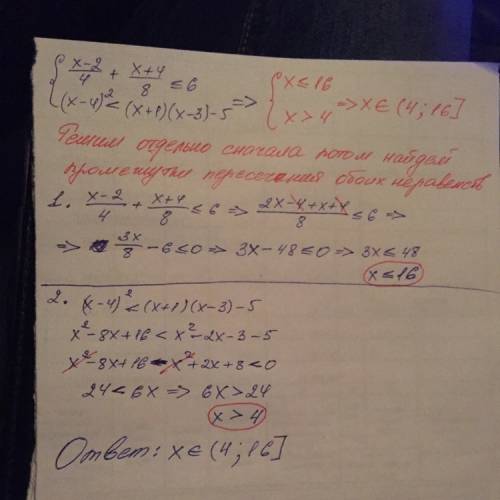 { (x-2)/4 + (x+4)/8 ≤ 6
(x-4)² < (x+1)(x-3)-5 => { x ≤ 16
x > 4 => x ∈ (4; 16]
Решим отдельно сначала потом найдем
промежутки пересечения обоих неравенств
1. (x-2)/4 + (x+4)/8 ≤ 6 => (2x-4+x+4)/8 ≤ 6 =>
=> 3x/8 - 6 ≤ 0 => 3x-48 ≤ 0 => 3x ≤ 48
x ≤ 16
2. (x-4)² < (x+1)(x-3)-5
x²-8x+16 < x²-2x-3-5
x²-8x+16-x²+2x+8<0
24 < 6x => 6x > 24
x > 4
Ответ: x ∈ (4; 16]